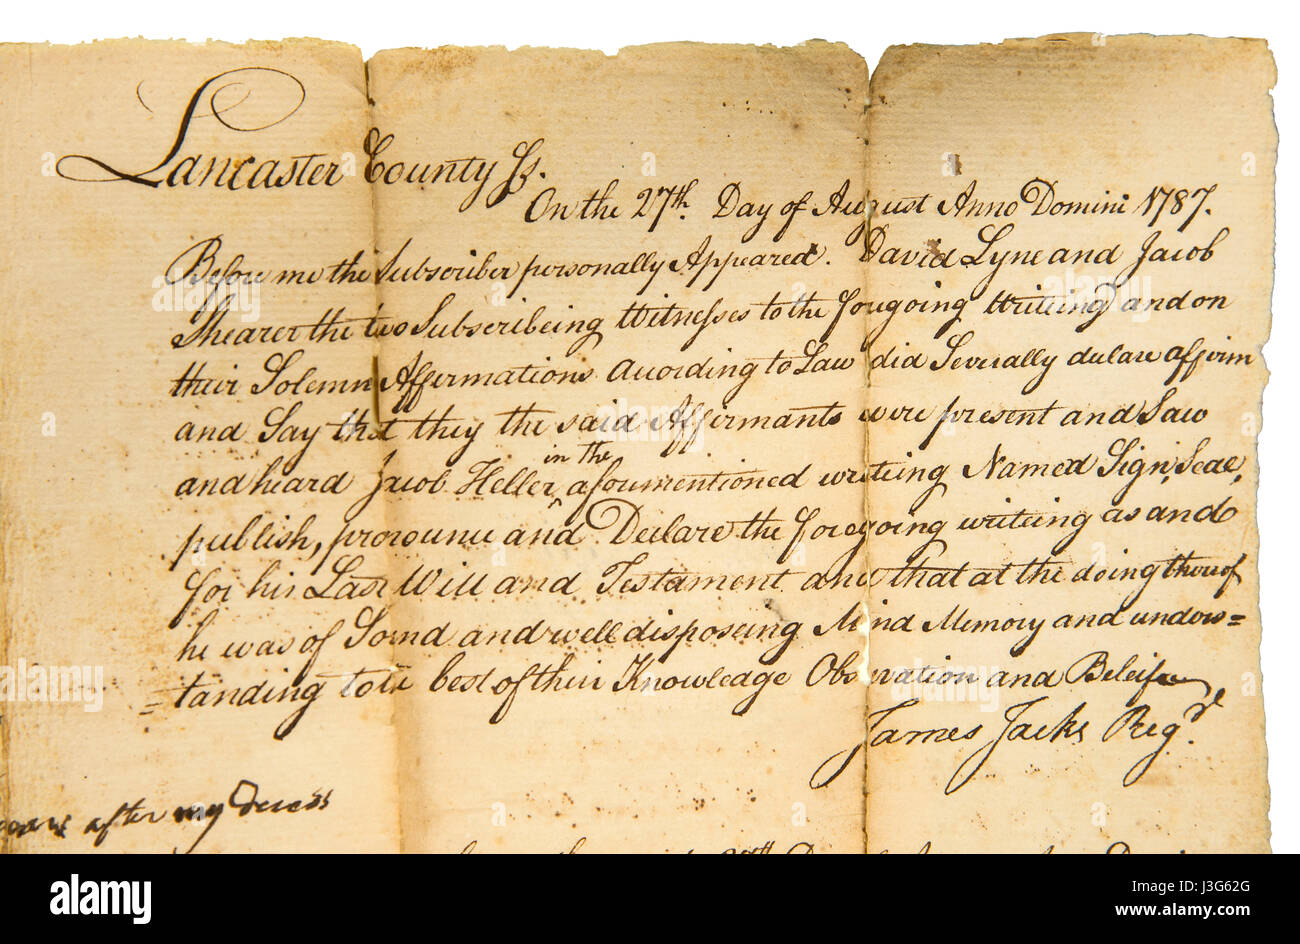 Lancaster County Ss.
On the 27th. Day of August Anno Domini 1787.
Before me the Subscriber personally Appeared. David Lyne and Jacob
Shearer the two Subscribeing Witnesses to the foregoing Writeing and on
their Solemn Affermations Acording to Law did Severally declare affirm
and Say that they the said Affirmants were present and Saw
in the
and heard Jacob Heller ^ aforementioned writeing Named Sign, Seal,
publish, pronounce and Declare the foregoing writeing as and
for his Last Will and Testament and that at the doing thereof
he was of Sound and well disposeing Mind Memory and unders=
=tanding to the best of their Knowledge Observation and Beleif
James Jacks Regd.
after my Decess
alamy
Image ID: J3G62G
www.alamy.com